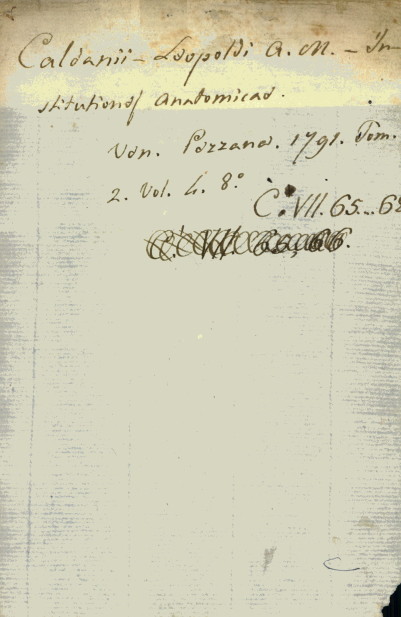 Caldanii - Leopoldi A. M. - In-
stitutiones Anatomicae.
Ven. Pezzana. 1791. Tom.
2. Vol. 4. 8.°
C. VII. 65...68
C. VII. 65, 66.